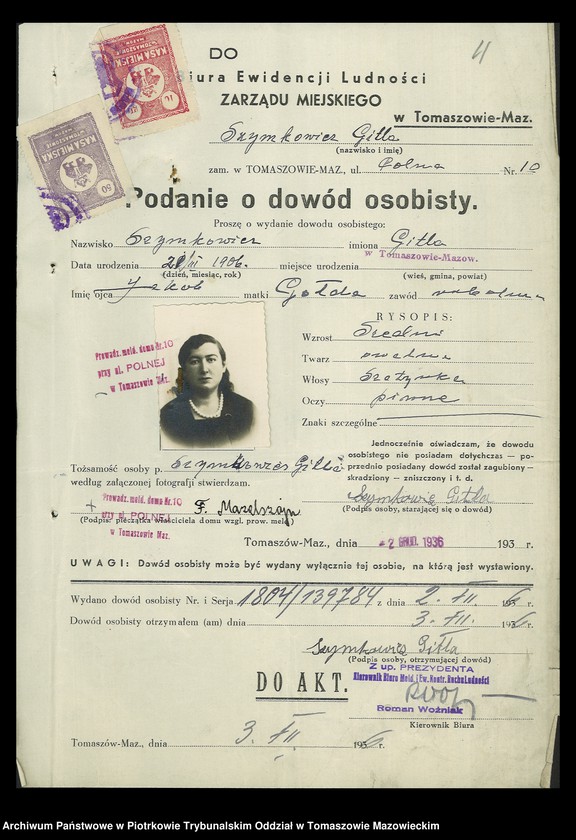 11
DO
Biura Ewidencji Ludności
ZARZĄDU MIEJSKIEGO
w Tomaszowie-Maz.
KASA MIEJSKA
KASA MIEJSKA
50
Szymkowicz Gitla
(nazwisko i imię)
zam. w TOMASZOWIE-MAZ., ul. Polna Nr. 10
Podanie o dowód osobisty.
Proszę o wydanie dowodu osobistego:
Nazwisko Szymkowicz imiona Gitla
Data urodzenia 1906. miejsce urodzenia w Tomaszowie-Mazow.
(dzień, miesiąc, rok) (wieś, gmina, powiat)
Imię ojca Jakob matki Gołda zawód
RYSOPIS:
Wzrost Średni
Twarz owalna
Włosy Szatynka
Oczy piwne
Znaki szczególne
Prowadz. meld. domu Nr. 10
przy ul. POLNEJ
w Tomaszowie Maz.
Jednocześnie oświadczam, że dowodu
osobistego nie posiadam dotychczas — po-
przednio posiadany dowód został zagubiony —
skradziony — zniszczony i t. d.
Szymkowicz Gitla
(Podpis osoby, starającej się o dowód)
Tożsamość osoby p. Szymkowicz Gitla
według załączonej fotografji stwierdzam.
Prowadz. meld. domu Nr. 10
przy ul. POLNEJ
w Tomaszowie Maz.
F. Mazelsztajn
(Podpis: pieczątka właściciela domu wzgl. prow. meld.)
Tomaszów-Maz., dnia -2 GRUD. 1936 193 r.
UWAGI: Dowód osobisty może być wydany wyłącznie tej osobie, na którą jest wystawiony.
Wydano dowód osobisty Nr. i Serja 1804/139784 z dnia 2. XII. 1936 r.
Dowód osobisty otrzymałem (am) dnia 3. XII. 1936 r.
Szymkowicz Gitla
(Podpis osoby, otrzymującej dowód)
Z up. PREZYDENTA
Kierownik Biura Meld. i Ew. Kontr. Ruchu Ludności
DO AKT.
Roman Woźniak
Kierownik Biura
Tomaszów-Maz., dnia 3. XII 1936 r.
Archiwum Państwowe w Piotrkowie Trybunalskim Oddział w Tomaszowie Mazowieckim